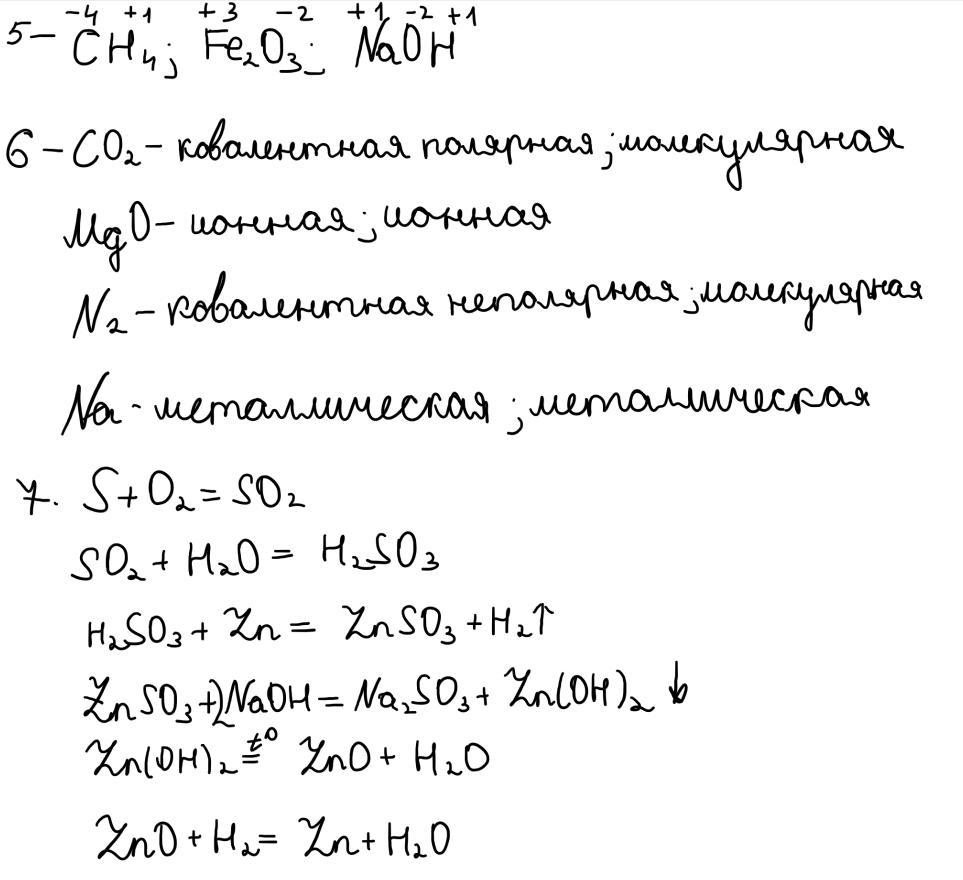 −4 +1 +3 −2 +1 −2 +1
5 – CH₄; Fe₂O₃; NaOH
6 – CO₂ – ковалентная полярная; молекулярная
MgO – ионная; ионная
N₂ – ковалентная неполярная; молекулярная
Na - металлическая; металлическая
7. S + O₂ = SO₂
SO₂ + H₂O = H₂SO₃
H₂SO₃ + Zn = ZnSO₃ + H₂↑
ZnSO₃ + 2NaOH = Na₂SO₃ + Zn(OH)₂ ↓
Zn(OH)₂ =t⁰ ZnO + H₂O
ZnO + H₂ = Zn + H₂O